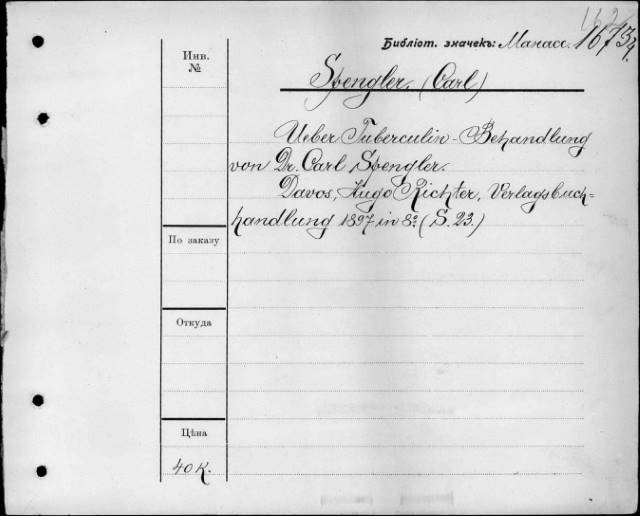 Библіот. значекъ: Манасс. 1673/4.
Инв.
№
Spengler. (Carl)
Ueber Tuberculin-Behandlung
von Dr. Carl Spengler.
Davos, Hugo Richter, Verlagsbuch=
handlung 1897 in 8º. (S. 23.)
По заказу
Откуда
Цѣна
40 к.